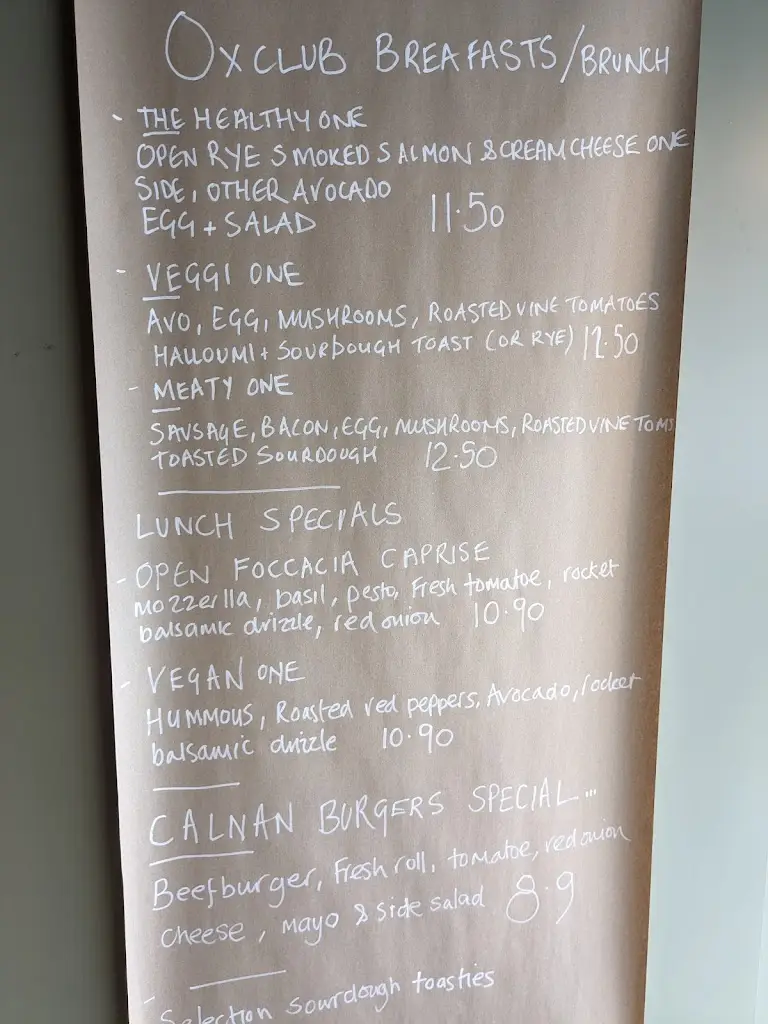 OXCLUB BREAFASTS/BRUNCH
- THE HEALTHY ONE
OPEN RYE SMOKED SALMON & CREAM CHEESE ONE
SIDE, OTHER AVOCADO
EGG + SALAD 11.50
- VEGGI ONE
AVO, EGG, MUSHROOMS, ROASTED VINE TOMATOES
HALLOUMI + SOURDOUGH TOAST (OR RYE) 12.50
- MEATY ONE
SAUSAGE, BACON, EGG, MUSHROOMS, ROASTED VINE TOMS
TOASTED SOURDOUGH 12.50
LUNCH SPECIALS
- OPEN FOCCACIA CAPRISE
mozzerlla, basil, pesto, Fresh tomatoe, rocket
balsamic drizzle, red onion 10.90
- VEGAN ONE
HUMMOUS, Roasted red peppers, Avocado, rocket
balsamic drizzle 10.90
CALNAN BURGERS SPECIAL...
Beefburger, Fresh roll, tomatoe, red onion
cheese, mayo & side salad 8.9
- Selection sourdough toasties